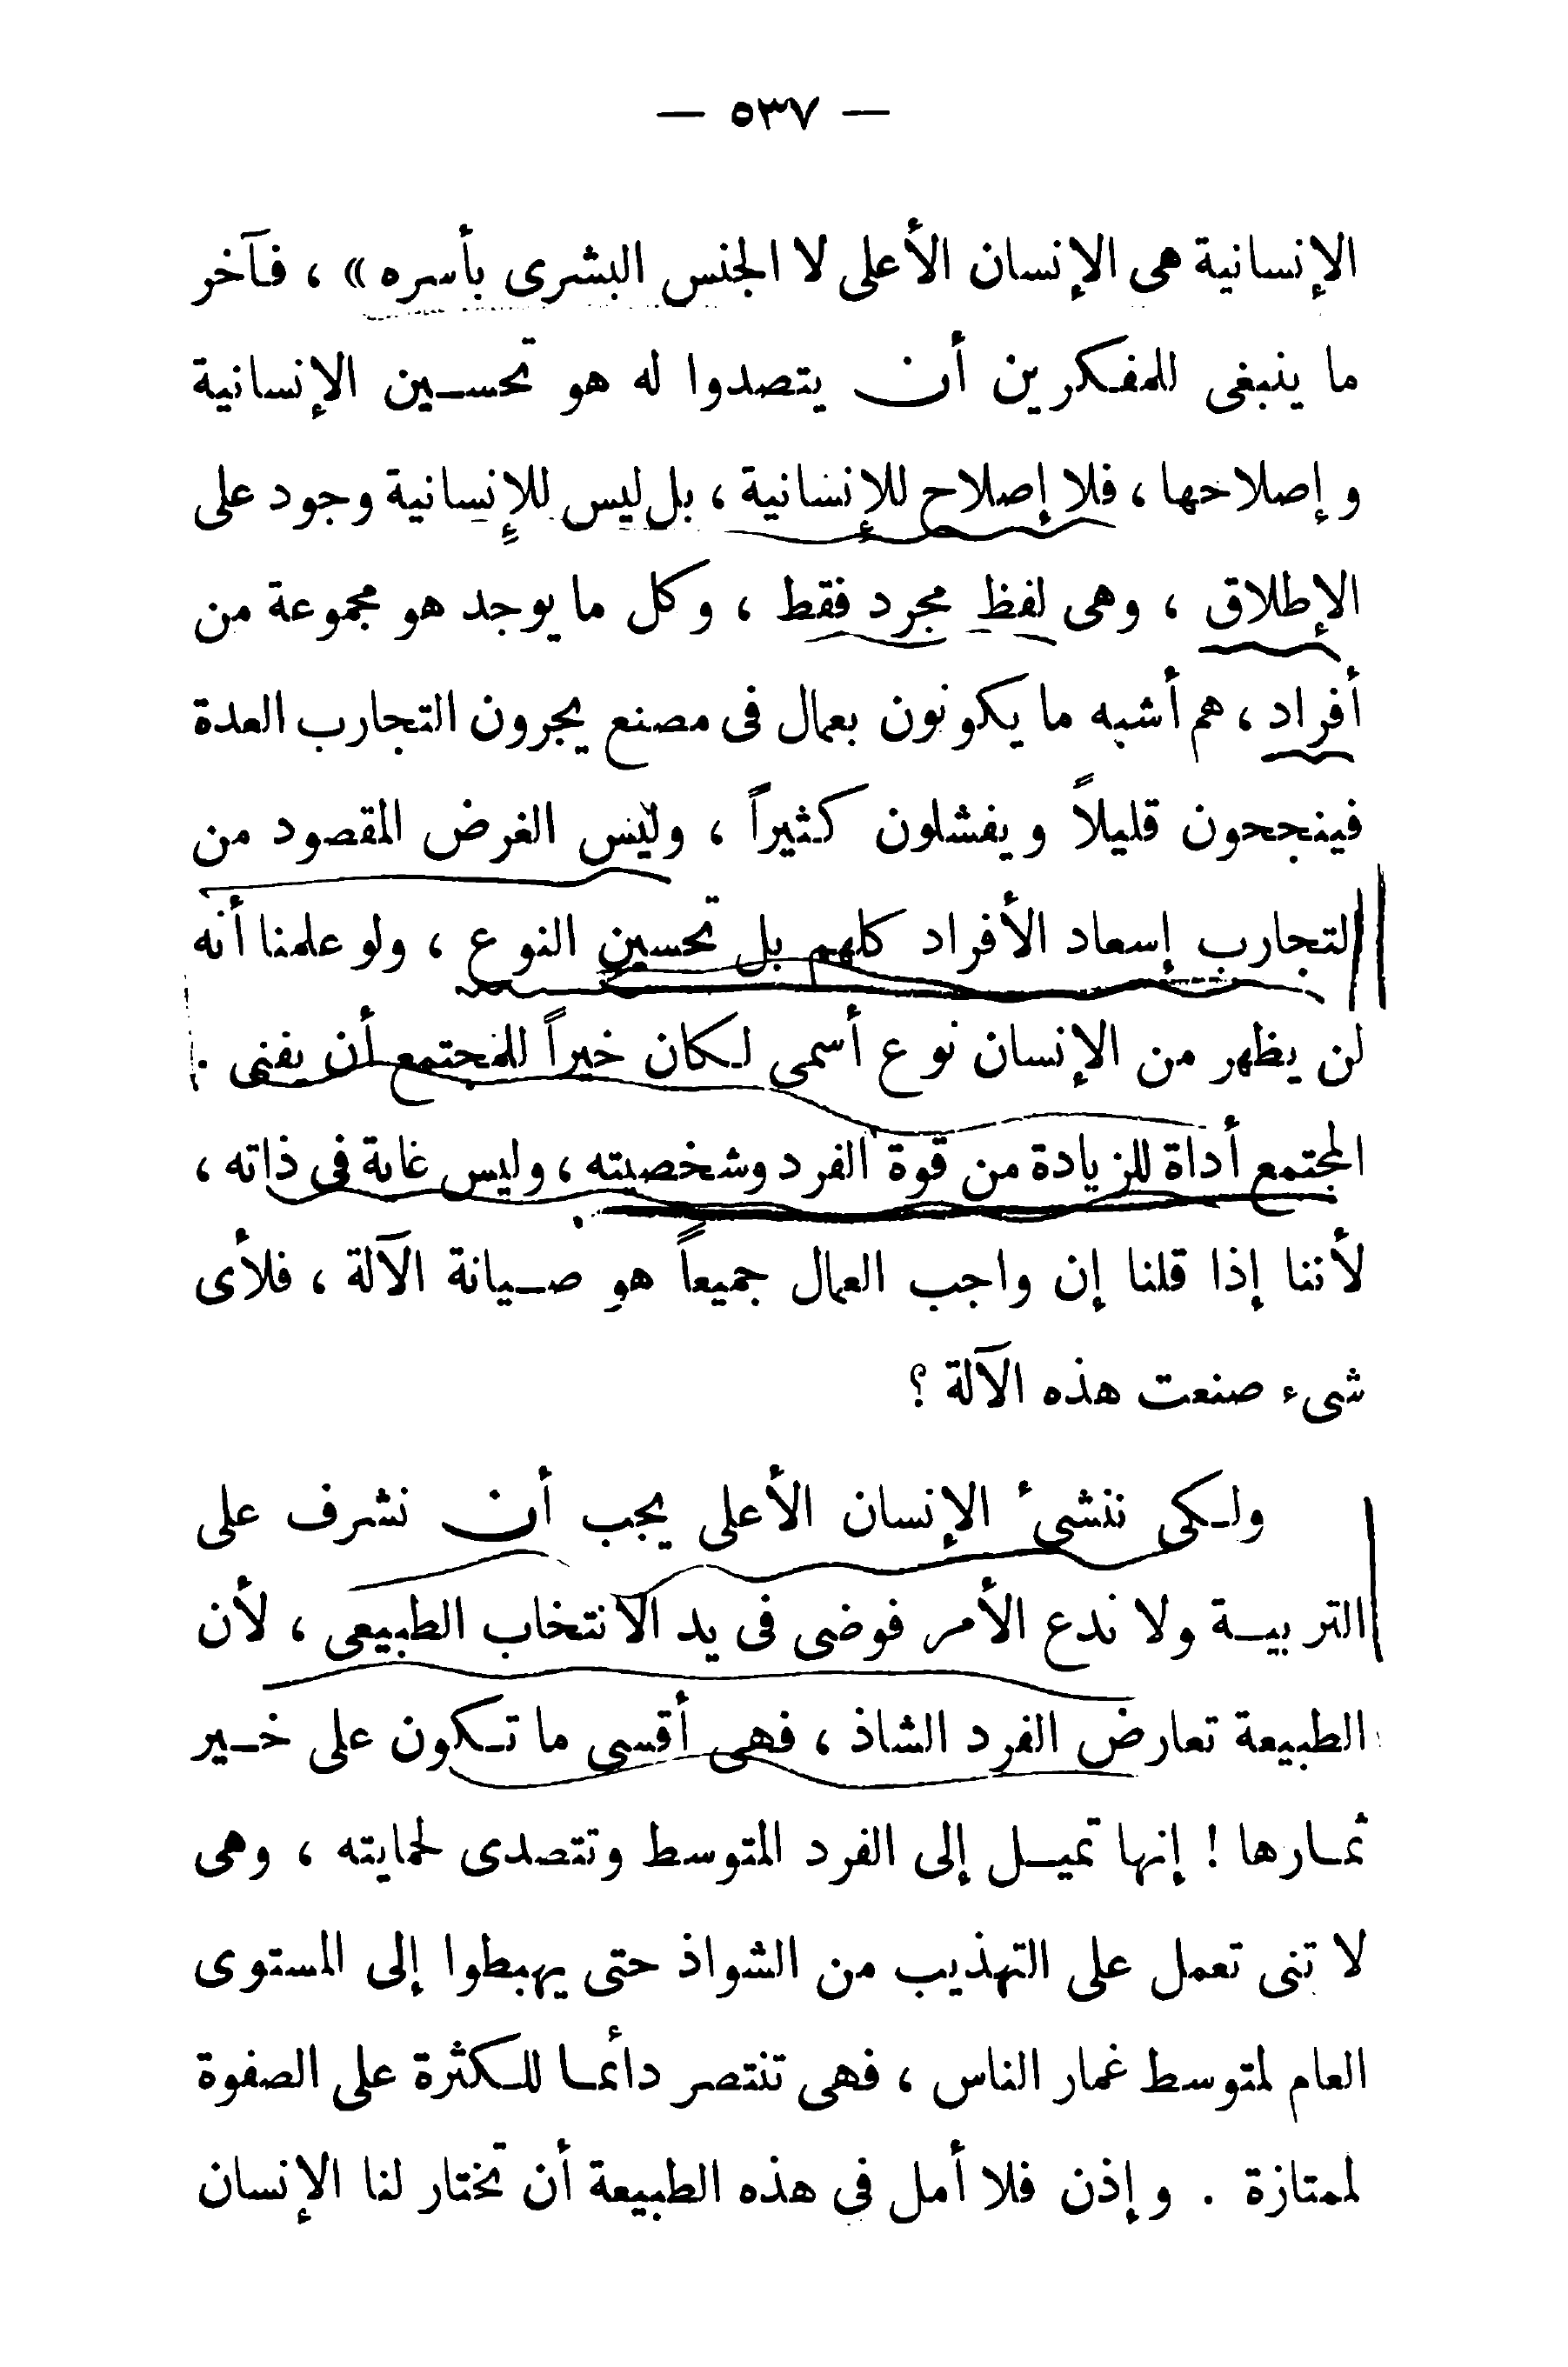 — ٥٣٧ —
الإنسانية هى الإنسان الأعلى لا الجنس البشرى بأسره» ، فآخر
ما ينبغى للمفكرين أن يتصدوا له هو تحسين الإنسانية
وإصلاحها ، فلا إصلاح للإنسانية ، بل ليس للإنسانية وجود على
الإطلاق ، وهى لفظ مجرد فقط ، وكل ما يوجد هو مجموعة من
أفراد ، هم أشبه ما يكونون بعمال فى مصنع يجرون التجارب العدة
فينجحون قليلاً ويفشلون كثيراً ، وليس الغرض المقصود من
التجارب إسعاد الأفراد كلهم بل تحسين النوع ، ولو علمنا أنه
لن يظهر من الإنسان نوع أسمى لكان خيراً للمجتمع أن يفنى .
المجتمع أداة للزيادة من قوة الفرد وشخصيته ، وليس غاية فى ذاته ،
لأننا إذا قلنا إن واجب العمال جميعاً هو صيانة الآلة ، فلأى
شىء صنعت هذه الآلة ؟
ولكى ننشىء الإنسان الأعلى يجب أن نشرف على
التربية ولا ندع الأمر فوضى فى يد الانتخاب الطبيعى ، لأن
الطبيعة تعارض الفرد الشاذ ، فهى أقسى ما تكون على خير
ثمارها ! إنها تميل إلى الفرد المتوسط وتتصدى لحمايته ، وهى
لا تنى تعمل على التهذيب من الشواذ حتى يهبطوا إلى المستوى
العام لمتوسط غمار الناس ، فهى تنتصر دائما للكثرة على الصفوة
لممتازة . وإذن فلا أمل فى هذه الطبيعة أن تختار لنا الإنسان